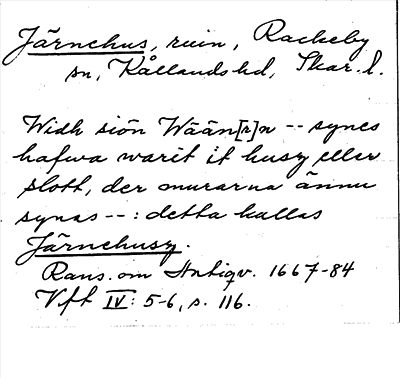 Järnehus, ruin, Rackeby
sn, Kållands hd, Skar. l.
Widh siön Wään[r]n -- synes
hafwa warit it husz eller
slott, der murarna ännu
synas --: detta kallas
Järnehusz.
Rans. om Antiqv. 1667-84
Vft IV: 5-6, s. 116.